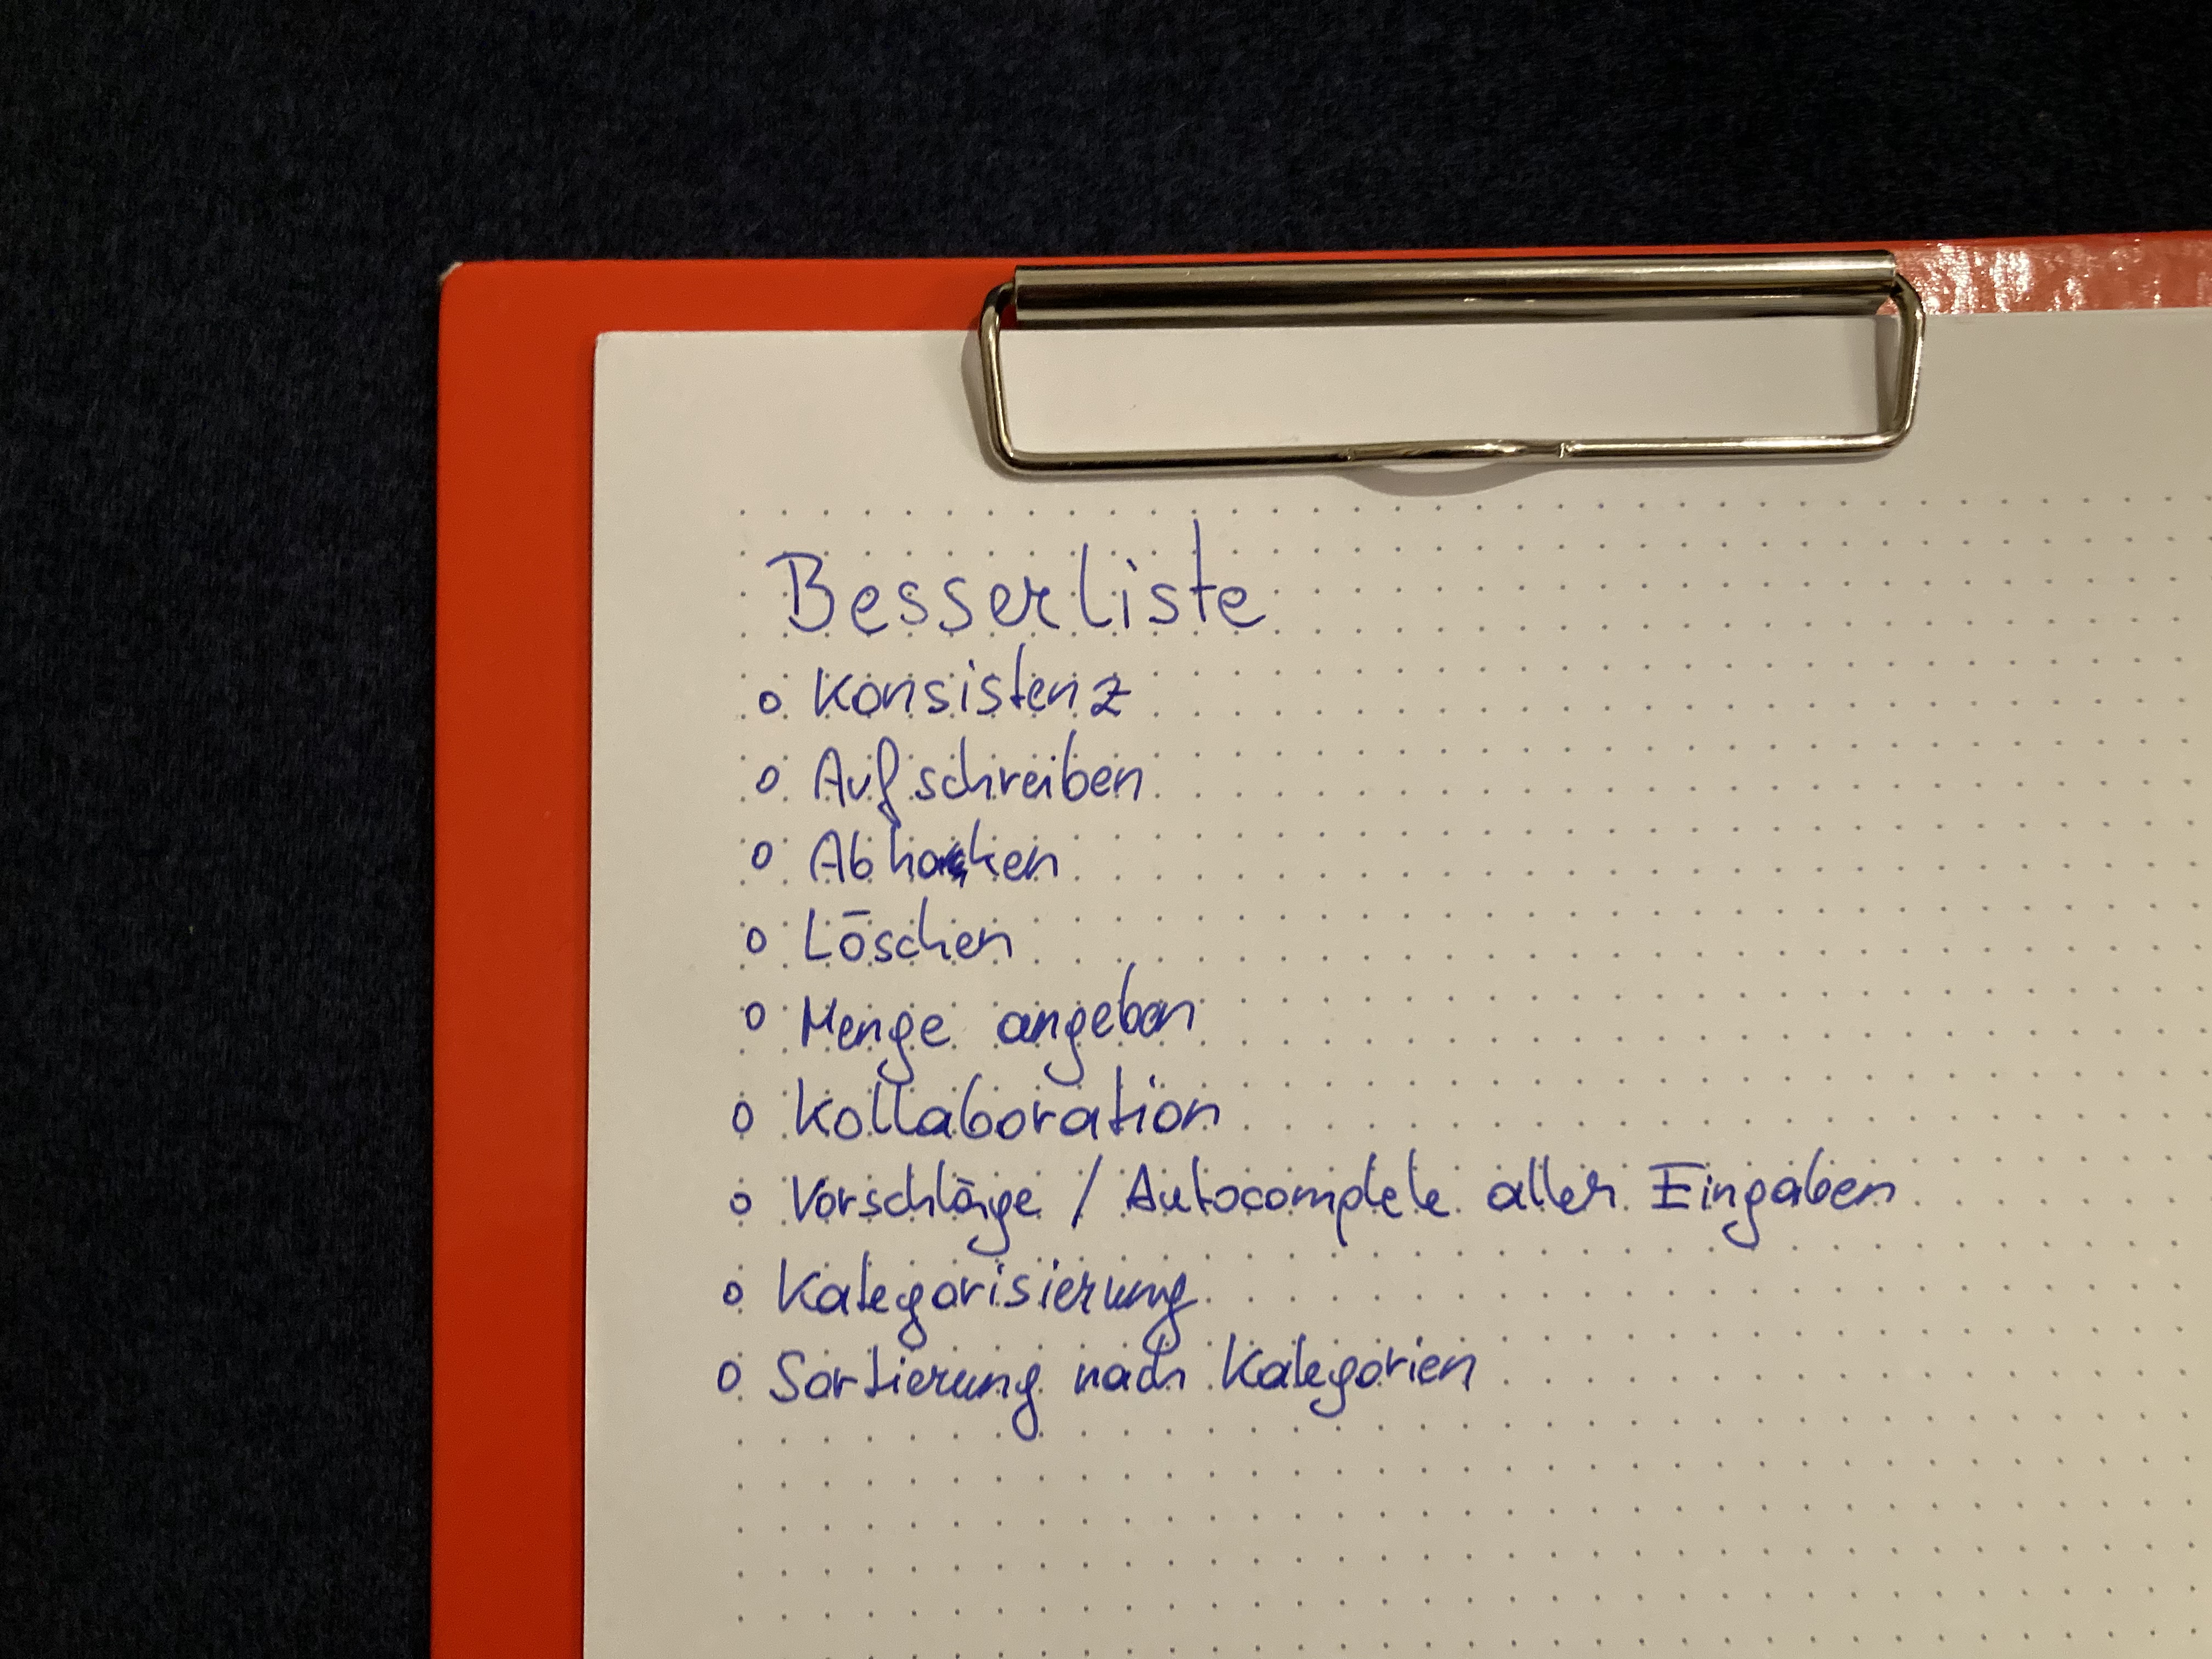 Besserliste
o Konsistenz
o Aufschreiben
o Abhaken
o Löschen
o Menge angeben
o Kollaboration
o Vorschläge / Autocomplete aller Eingaben
o Kategorisierung
o Sortierung nach Kategorien